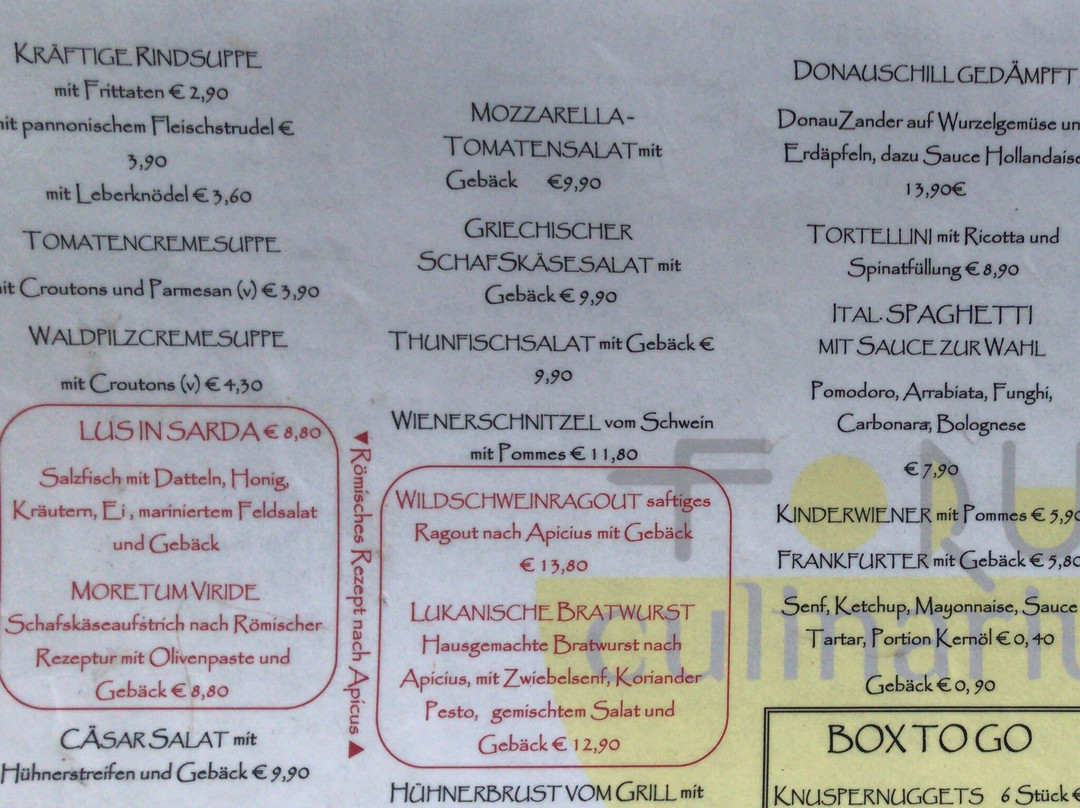 KRÄFTIGE RINDSUPPE
mit Frittaten € 2,90
mit pannonischem Fleischstrudel €
3,90
mit Leberknödel € 3,60
TOMATENCREMESUPPE
mit Croutons und Parmesan (v) € 3,90
WALDPILZCREMESUPPE
mit Croutons (v) € 4,30
LUS IN SARDA € 8,80
Salzfisch mit Datteln, Honig,
Kräutern, Ei , mariniertem Feldsalat
und Gebäck
MORETUM VIRIDE
Schafskäseaufstrich nach Römischer
Rezeptur mit Olivenpaste und
Gebäck € 8,80
CÄSAR SALAT mit
Hühnerstreifen und Gebäck € 9,90
▼Römisches Rezept nach Apicus ▲
MOZZARELLA-
TOMATENSALAT mit
Gebäck €9,90
GRIECHISCHER
SCHAFSKÄSESALAT mit
Gebäck € 9,90
THUNFISCHSALAT mit Gebäck €
9,90
WIENERSCHNITZEL vom Schwein
mit Pommes € 11,80
WILDSCHWEINRAGOUT saftiges
Ragout nach Apicius mit Gebäck
€ 13,80
LUKANISCHE BRATWURST
Hausgemachte Bratwurst nach
Apicius, mit Zwiebelsenf, Koriander
Pesto, gemischtem Salat und
Gebäck € 12,90
HÜHNERBRUST VOM GRILL mit
DONAUSCHILL GEDÄMPFT
DonauZander auf Wurzelgemüse un
Erdäpfeln, dazu Sauce Hollandaise
13,90€
TORTELLINI mit Ricotta und
Spinatfüllung € 8,90
ITAL. SPAGHETTI
MIT SAUCE ZUR WAHL
Pomodoro, Arrabiata, Funghi,
Carbonara, Bolognese
€ 7,90
KINDERWIENER mit Pommes € 5,90
FRANKFURTER mit Gebäck € 5,80
Senf, Ketchup, Mayonnaise, Sauce
Tartar, Portion Kernöl € 0, 40
Gebäck € 0, 90
BOX TO GO
KNUSPERNUGGETS 6 Stück €
FORU
culinariu